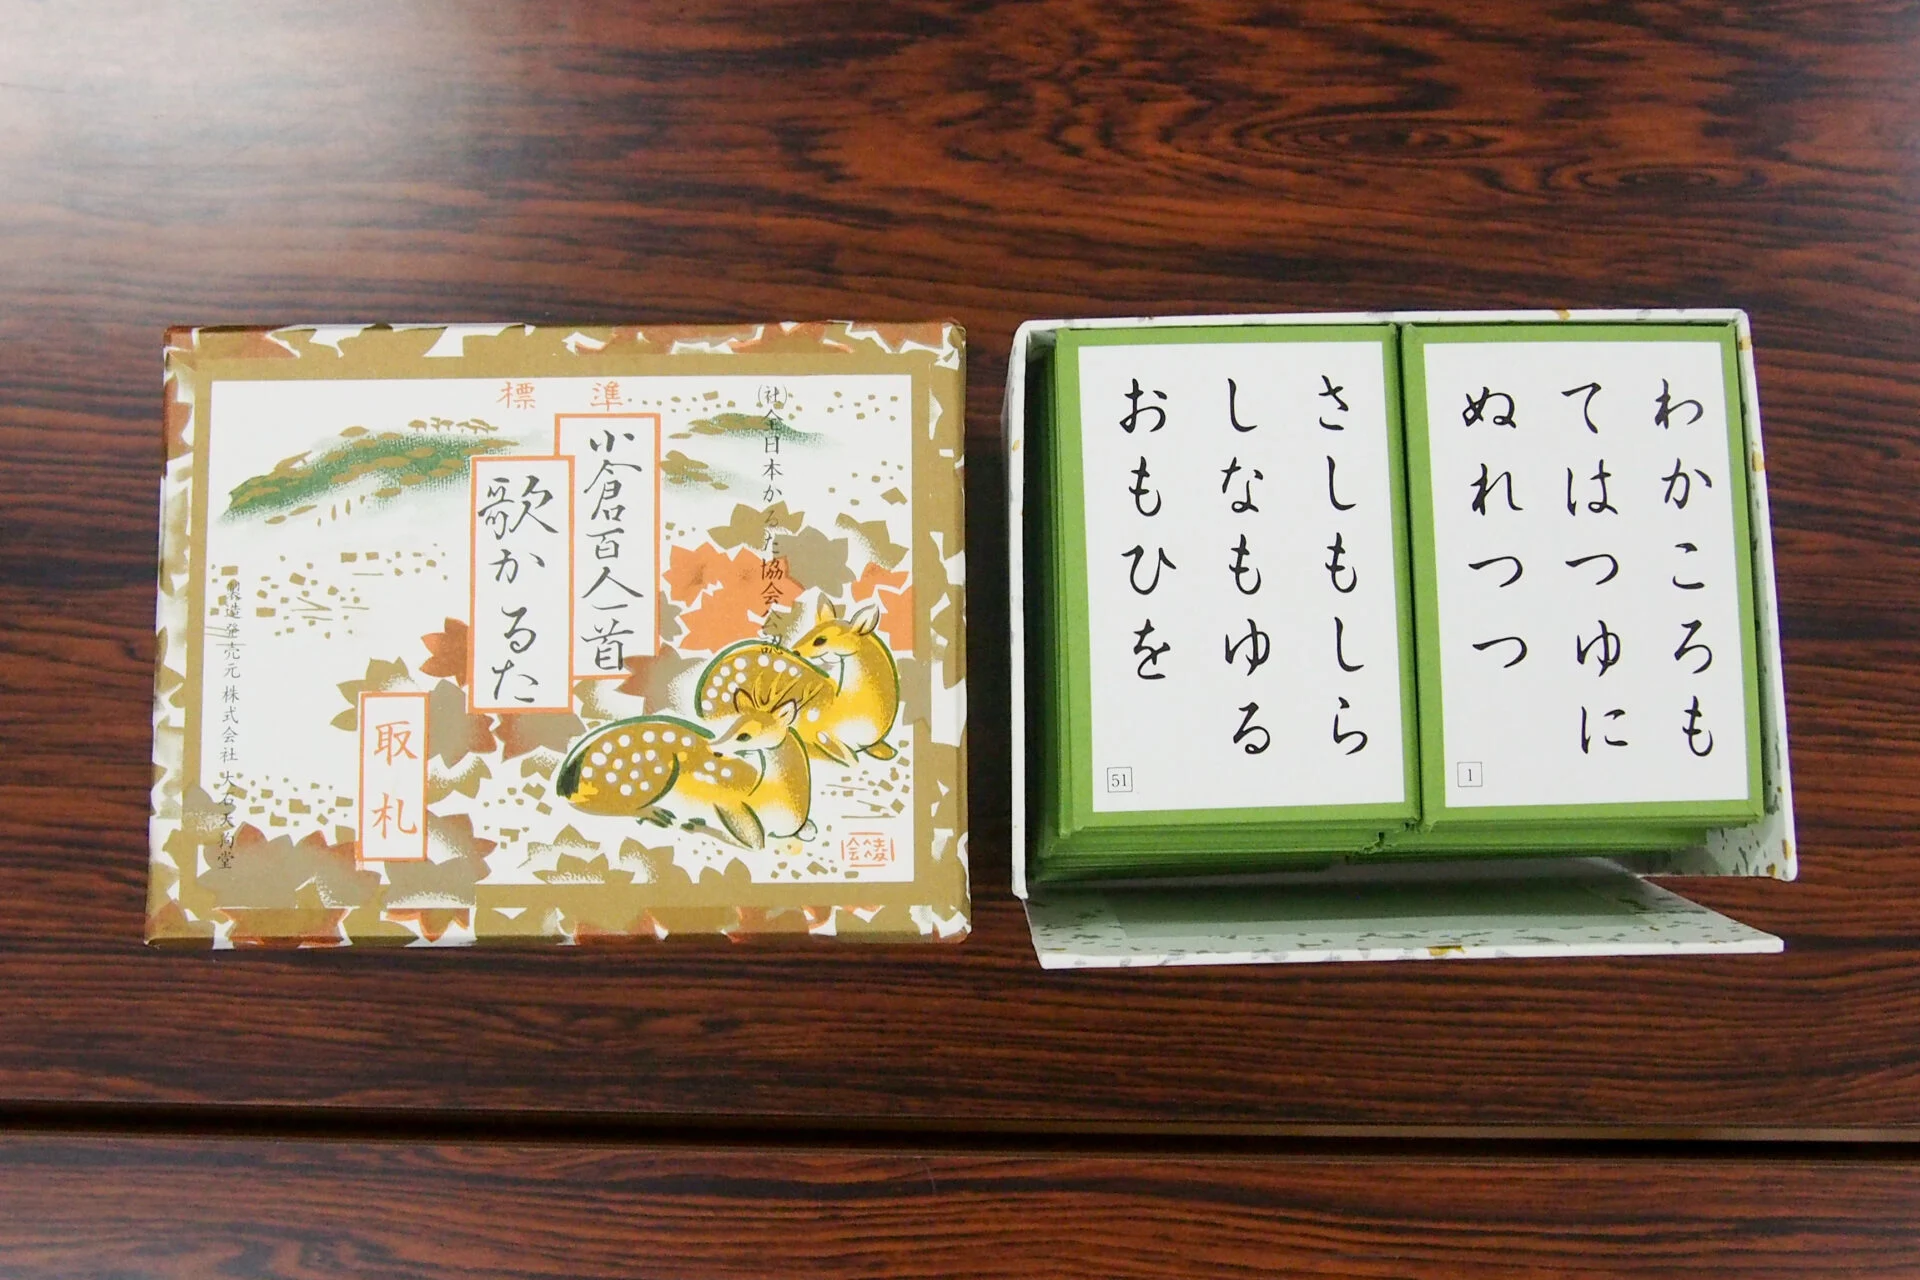 標準
小倉百人一首
歌かるた
取札
(社)全日本かるた協会公認
製造発売元 株式会社 大石天狗堂
さしもしら
しなもゆる
おもひを
51
わかころも
てはつゆに
ぬれつつ
1